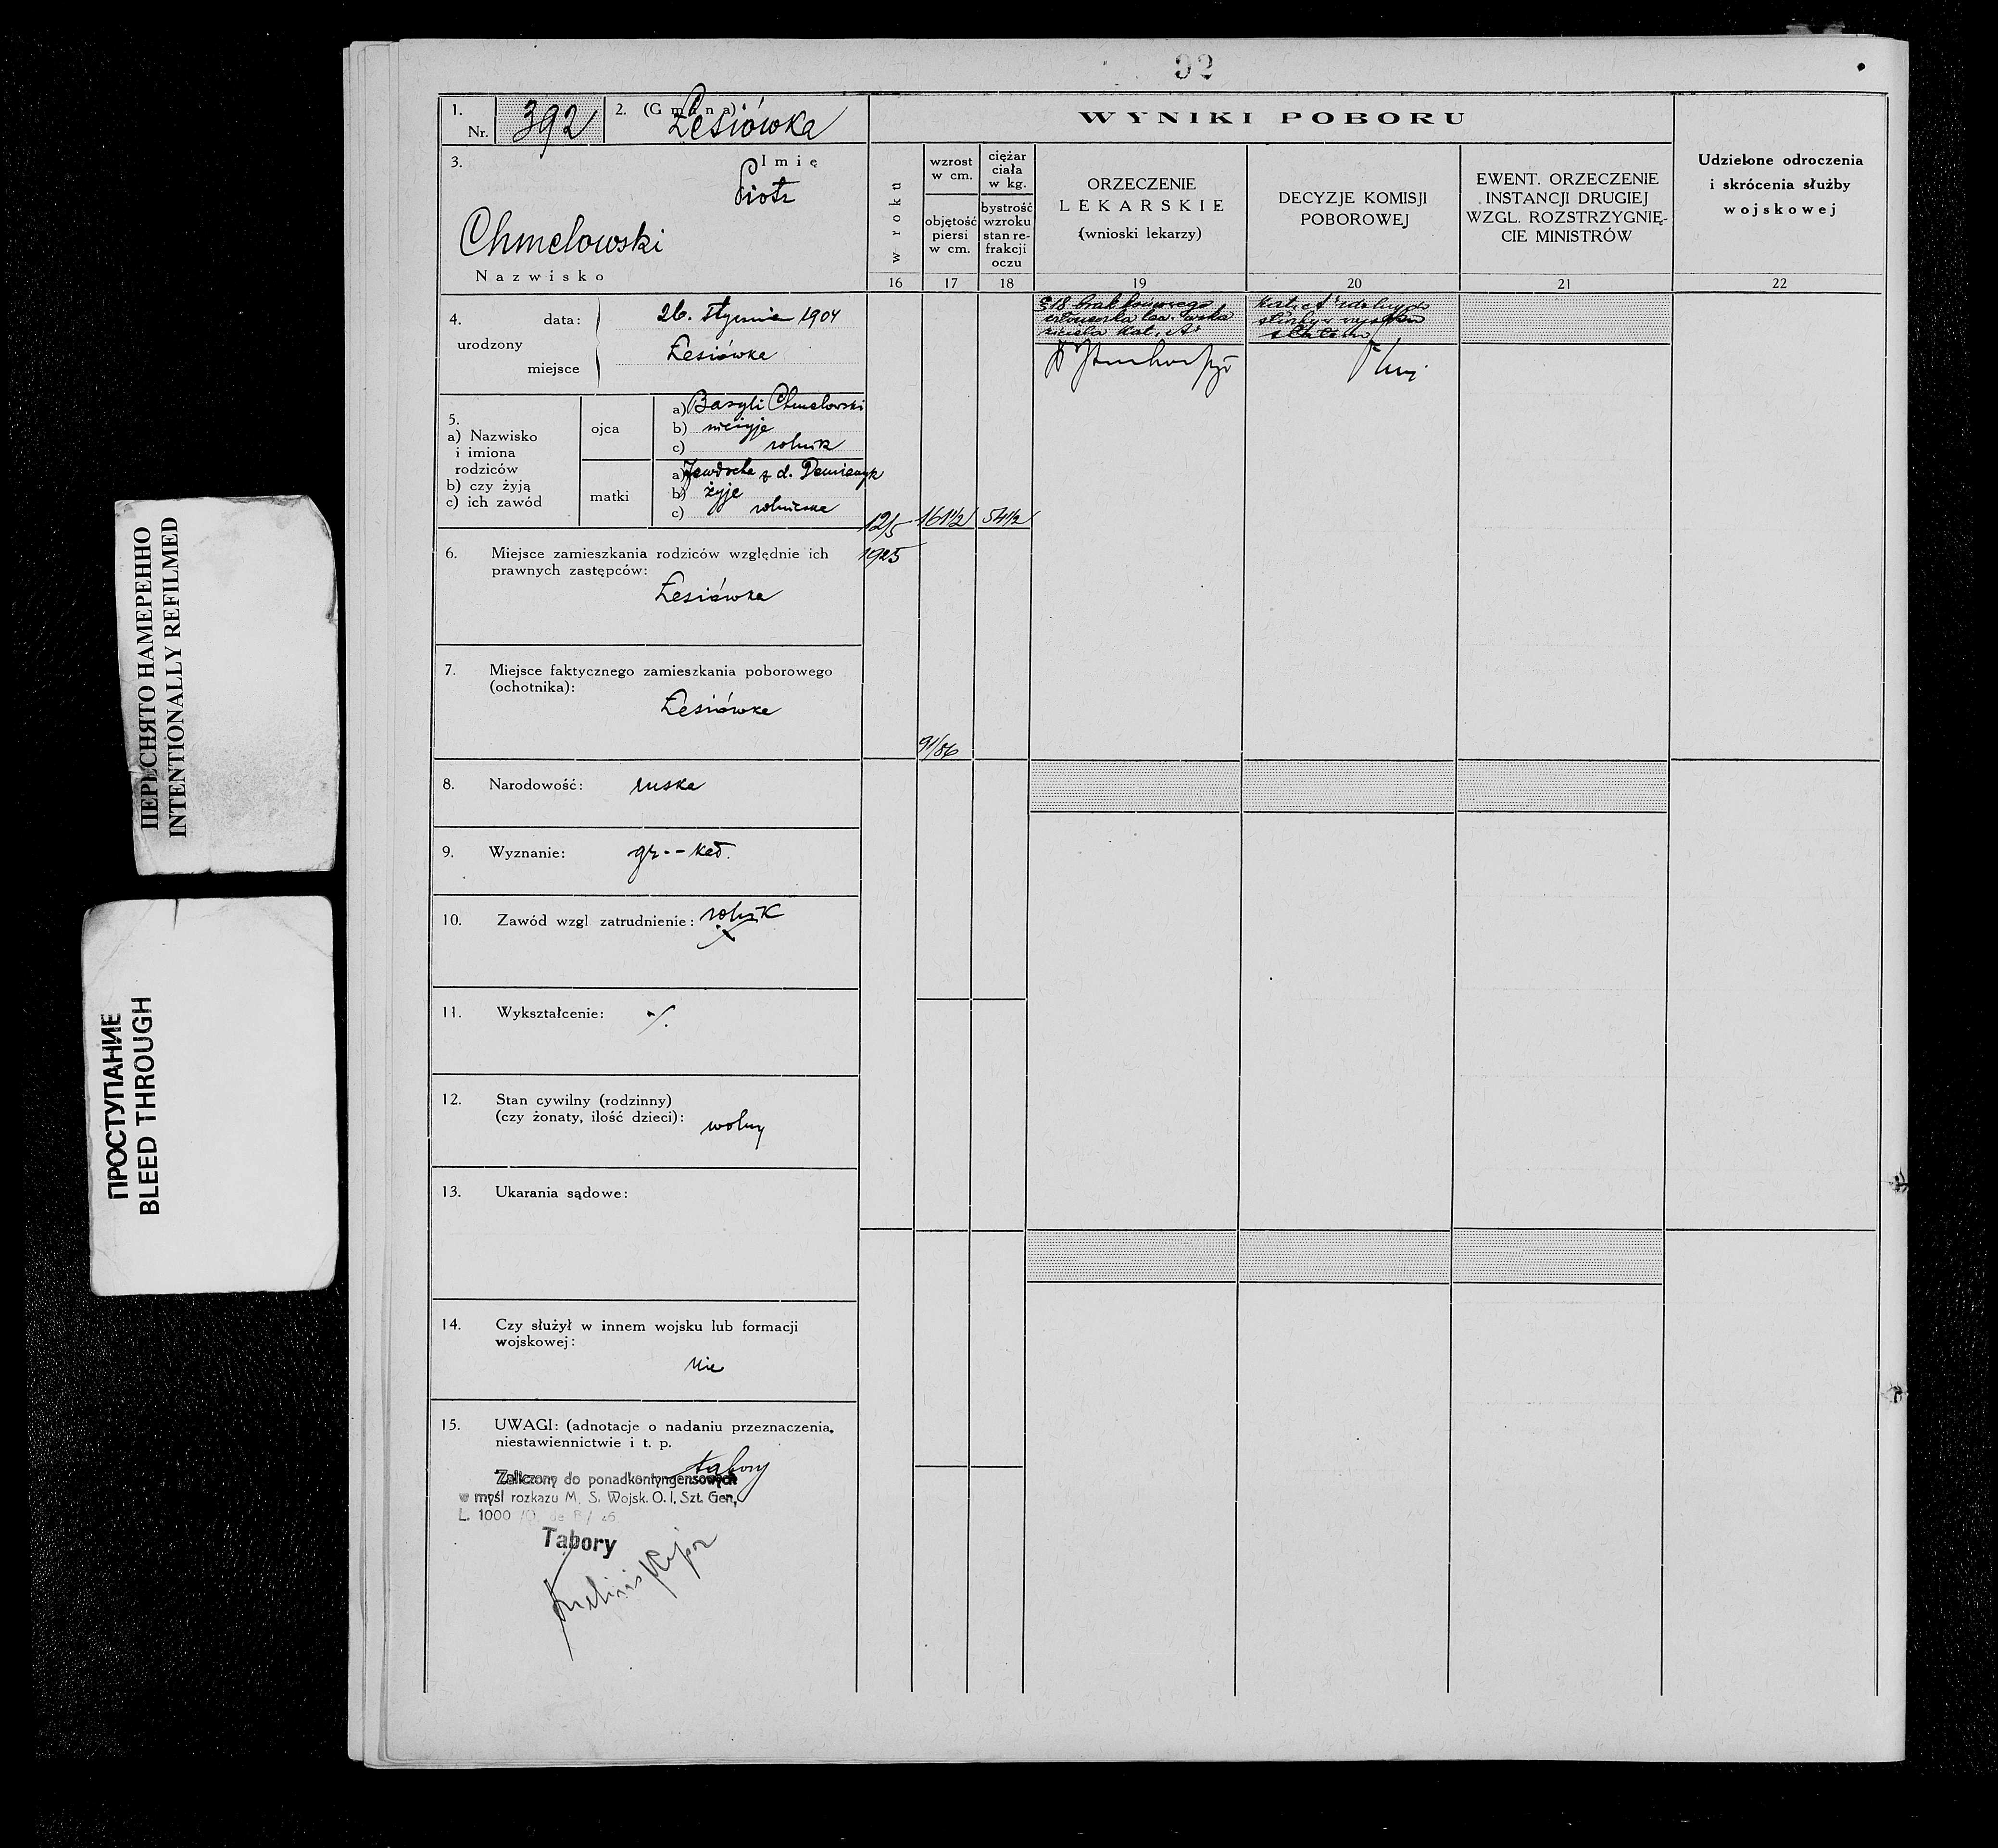 92
1.
Nr. 392
2. (Gmina) Łesiówka
3.
Imię
Piotr
Chmelowski
Nazwisko
4. urodzony
data: 26. stycznia 1904
miejsce Łesiówka
5.
a) Nazwisko
i imiona
rodziców
b) czy żyją
c) ich zawód
ojca
a) Bazyli Chmelowski
b) nieżyje
c) rolnik
matki
a) Jewdocha z d. Demianyk
b) żyje
c) rolniczka
6. Miejsce zamieszkania rodziców względnie ich
prawnych zastępców:
Łesiówka
7. Miejsce faktycznego zamieszkania poborowego
(ochotnika):
Łesiówka
8. Narodowość: ruska
9. Wyznanie: gr.-kat.
10. Zawód wzgl zatrudnienie: rolnik
11. Wykształcenie: ./.
12. Stan cywilny (rodzinny)
(czy żonaty, ilość dzieci): wolny
13. Ukarania sądowe:
14. Czy służył w innem wojsku lub formacji
wojskowej:
nie
15. UWAGI: (adnotacje o nadaniu przeznaczenia,
niestawiennictwie i t. p.
tabory
Zaliczony do ponadkontyngensowych
w myśl rozkazu M. S. Wojsk. O. I. Szt. Gen,
L. 1000
Tabory
WYNIKI POBORU
w roku
16
wzrost
w cm.
objętość
piersi
w cm.
17
ciężar
ciała
w kg.
bystrość
wzroku
stan re-
frakcji
oczu
18
ORZECZENIE
LEKARSKIE
(wnioski lekarzy)
19
DECYZJE KOMISJI
POBOROWEJ
20
EWENT. ORZECZENIE
INSTANCJI DRUGIEJ
WZGL. ROZSTRZYGNIĘ-
CIE MINISTRÓW
21
Udzielone odroczenia
i skrócenia służby
wojskowej
22
12/5 161½ 54½
1925
91/86
§ 18 brak końcowego
członeczka
Kat. A
Kat. A zdolny do
służby
ПЕРЕСНЯТО НАМЕРЕННО
INTENTIONALLY REFILMED
ПРОСТУПАНИЕ
BLEED THROUGH